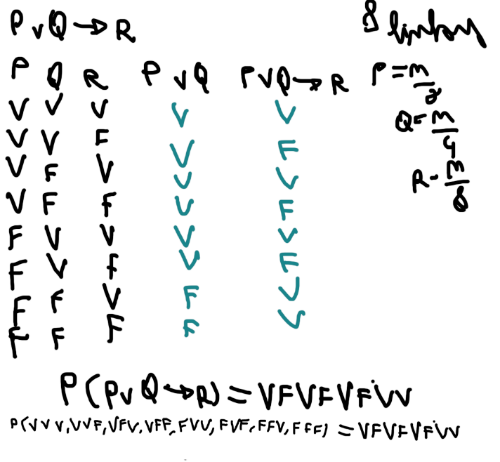 P v Q → R
8 linhas
P Q R P v Q P v Q → R
P = m/2
Q = m/4
R - m/8
V V V V V
V V F V F
V F V V V
V F F V F
F V V V V
F V F V F
F F V F V
F F F F V
P(P v Q → R) = VFVFVFVV
P(VVV, VVF, VFV, VFF, FVV, FVF, FFV, FFF) = VFVFVFVV